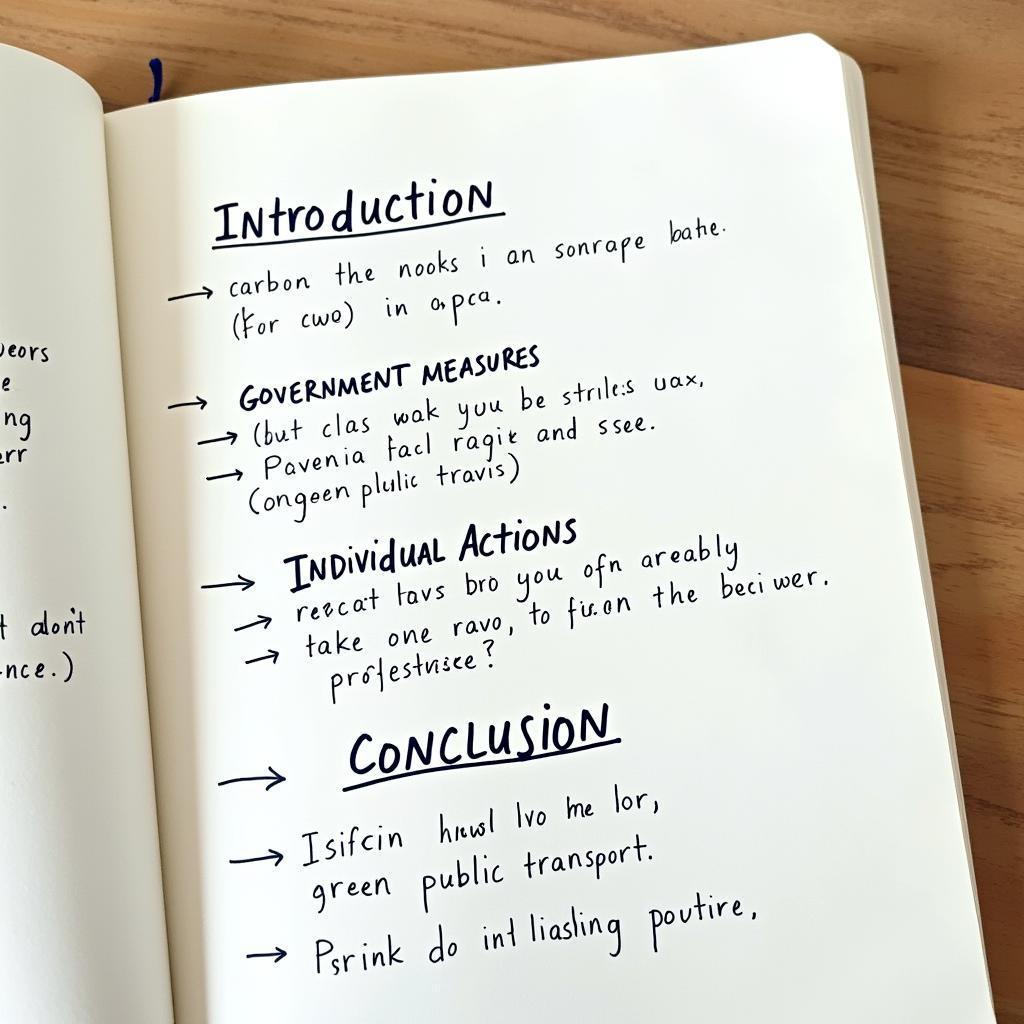 Introduction
→ carbon the nooks i an sonrape bathe.
(For cwo) in apca.
→ GOVERNMENT MEASURES
→ (but clas wak you be strile:s uax,
→ Pavenia facl ragie and ssee.
(ongeen plulic travis)
→ INDIVIDUAL ACTIONS
→ rescat tavs bro you ofn areably
→ take one ravo, to on the beci wer.
?
→ CONCLUSION
→ Isifcin lvo me lor,
green public transport.
→ Psrink do int liasling poutire,
ng
err
t alon't
nce.)